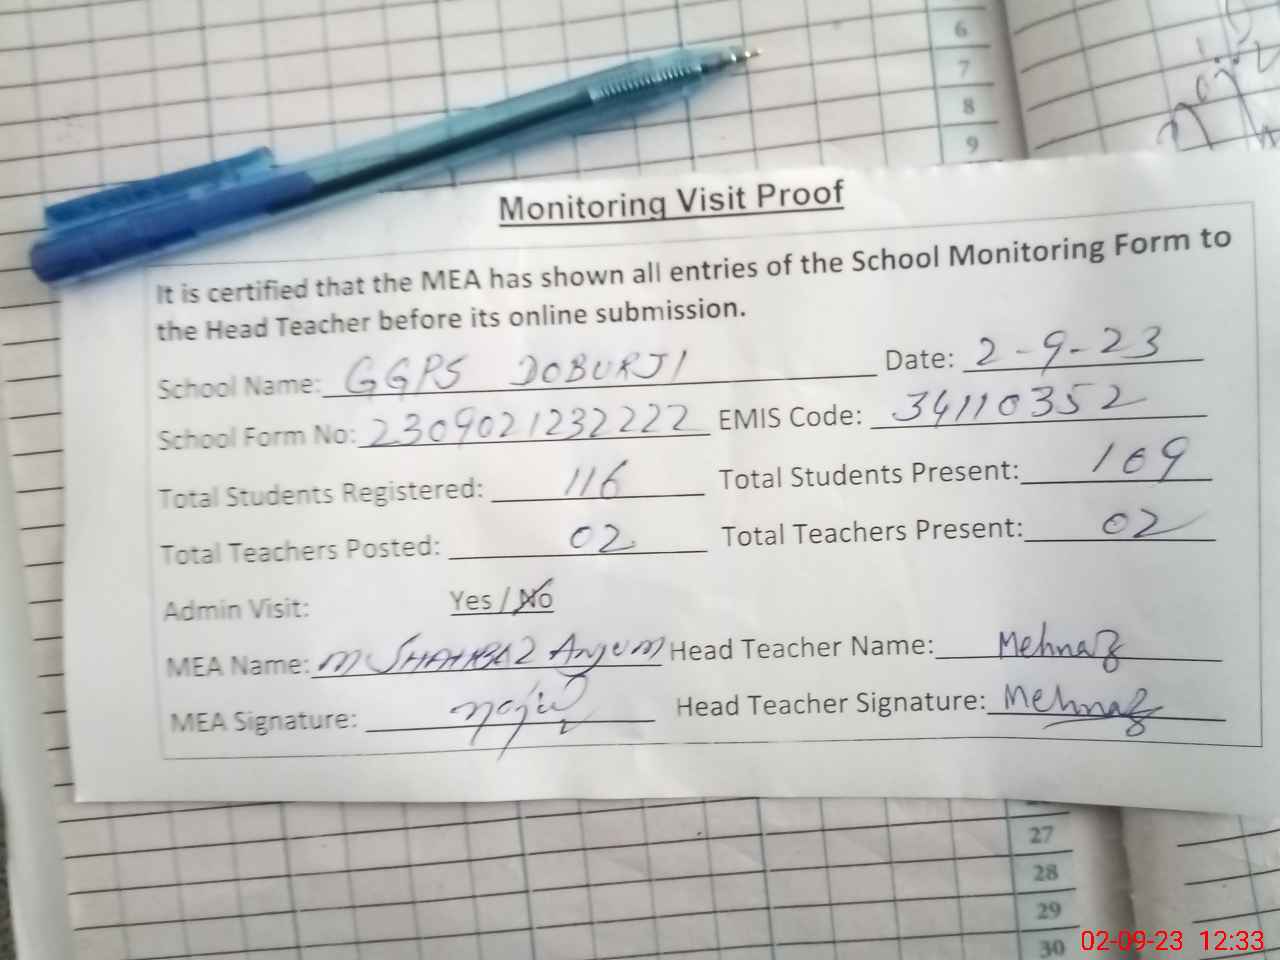 6
7
8
9
Monitoring Visit Proof
It is certified that the MEA has shown all entries of the School Monitoring Form to
the Head Teacher before its online submission.
School Name: GGPS DOBURJI Date: 2-9-23
School Form No: 2309021232222 EMIS Code: 34110352
Total Students Registered: 116 Total Students Present: 109
Total Teachers Posted: 02 Total Teachers Present: 02
Admin Visit: Yes / No
MEA Name: M SHAHBAZ Anjum Head Teacher Name: Mehnaz
MEA Signature: Head Teacher Signature: Mehnaz
27
28
29
30
02-09-23 12:33